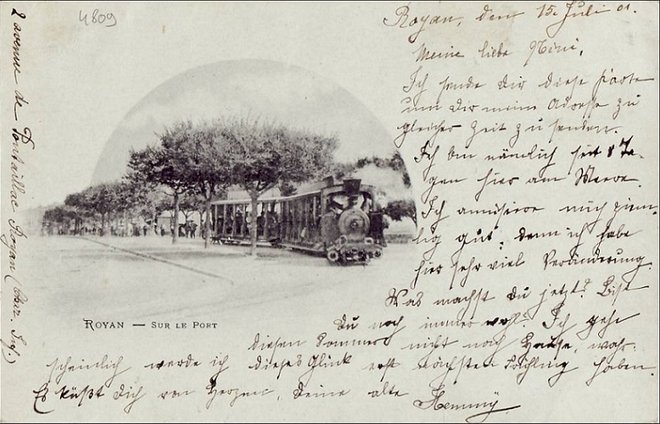 4809
Royan, den 15. Juli 01.
Meine liebe Mimi,
Ich sende dir diese Karte
um dir meine Adresse zu
gleicher Zeit zu senden.
Ich bin nämlich seit 8 Ta-
gen hier am Meere.
Ich amüsiere mich ziem-
lig gut, denn ich habe
hier sehr viel Veränderung.
Was machst du jetzt? Bist
du noch immer wol? Ich gehe
diesen Sommer nicht nach Hause, wahr-
scheinlich werde ich dieses Glück erst nächsten Frühling haben.
Es küßt dich von Herzen, deine alte
Hemmy
ROYAN — SUR LE PORT
2 avenue de Pontaillac Royan (Char. Inf.)